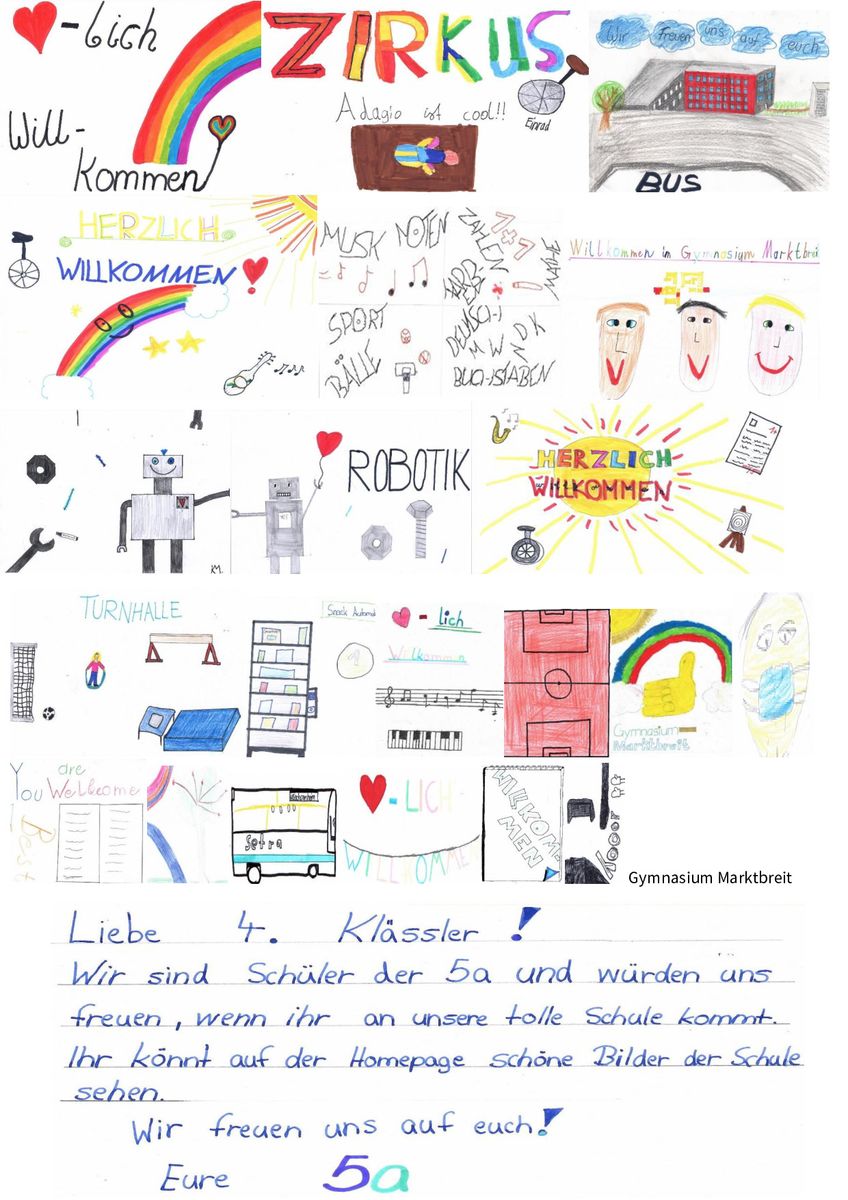 -lich
Will-
kommen
ZIRKUS
Adagio ist cool!!
Einrad
Wir freuen uns auf euch
BUS
HERZLICH
WILLKOMMEN
MUSIK NOTEN
ZAHLEN
7x7
MATHE
SPORT
BÄLLE
DEUTSCH
M W N D K
BUCHSTABEN
Willkommen im Gymnasium Marktbreit
ROBOTIK
KM.
HERZLICH
WILLKOMMEN
TURNHALLE
Snack Automat
-lich
Willkommen
Gymnasium
Marktbreit
You are Wellcome
Best
Setra
-LICH
WILLKOMME
WILLKOM-
MEN
Gymnasium Marktbreit
Liebe 4. Klässler!
Wir sind Schüler der 5a und würden uns
freuen, wenn ihr an unsere tolle Schule kommt.
Ihr könnt auf der Homepage schöne Bilder der Schule
sehen.
Wir freuen uns auf euch!
Eure 5a